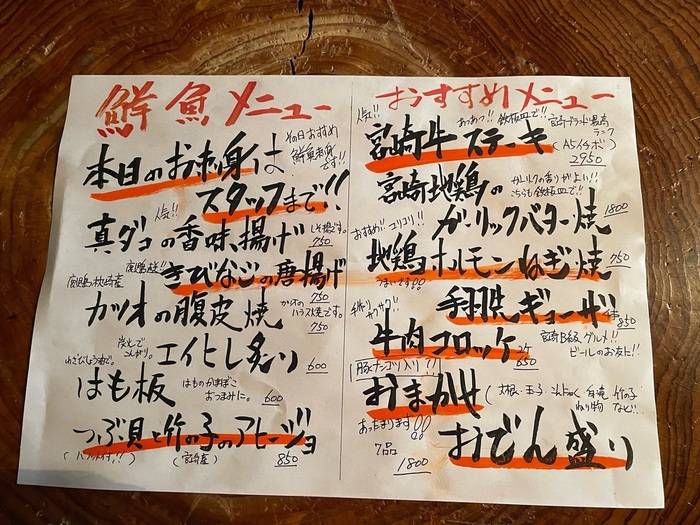 鮮魚メニュー
その日おすすめ
鮮魚刺身
です!!
本日のお刺身は
スタッフまで!!
人気!!
真ダコの香味揚げ
しそ揚です。
750
きびなごの唐揚げ
750
カツオの腹皮焼
カツオの
ハラス焼です。
750
炭火で
こんがり。
エイヒレ炙り
600
はも板
はものかまぼこ
おつまみに。
600
つぶ貝と竹の子のアヒージョ
(バゲット付!!)
(宮崎産)
850
おすすめメニュー
人気!!
あつあつ!!鉄板皿で!!
宮崎ブランド最高
ランク
宮崎牛ステーキ
(A5イチボ)
2950
宮崎地鶏の
ガーリックバター焼
ガーリックの香りがよい!!
こちらも鉄板皿で!!
1800
おすすめ!!コリコリ!!
地鶏ホルモンねぎ焼
750
うまいです!!
手羽先ギョーザ
850
宮崎B級グルメ!!
ビールのお友に!!
手作り
サクサク!!
牛肉コロッケ
2ケ
650
豚ナンコツ入り!!
おまかせ
おでん盛り
(大根・玉子・こんにゃく・厚揚・竹の子
ねり物など!!
あったまります!!
7品
1800